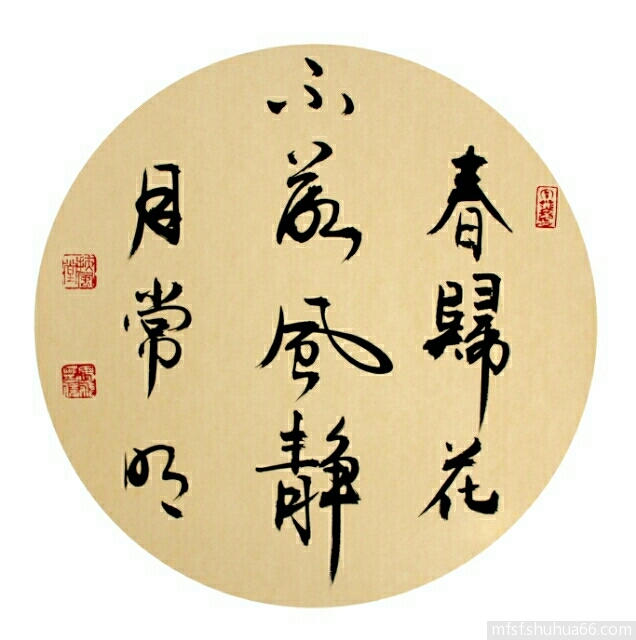 春歸花
不落風靜
月常明
mfsfshuhua66.com